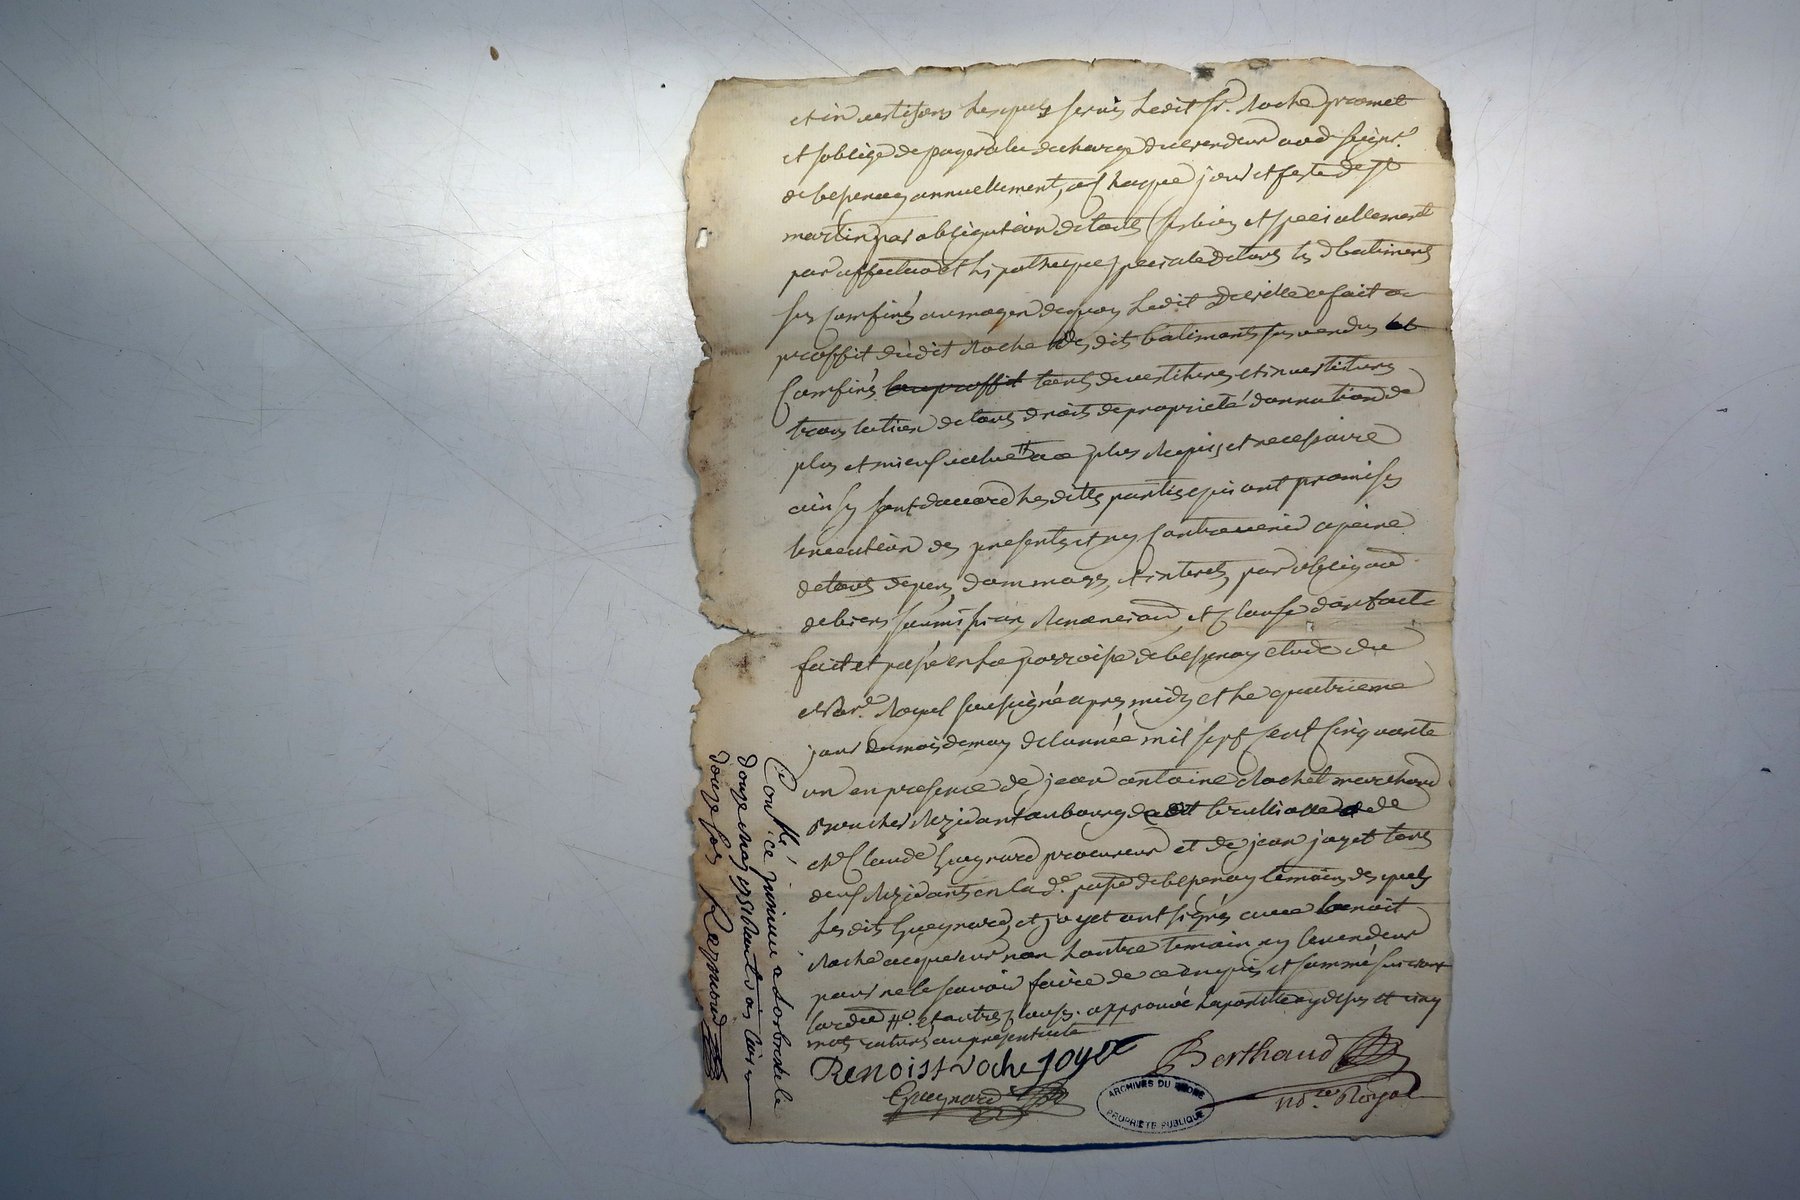 et investison lesquels servis ledit Sr. Roche promet
et soblige de payer à la décharge du vendeur aud. seignr.
de bessenay annuellement, a chaque jour et feste de St
martin par obligation de touts ses biens et specialement
par affectaõn et hipotheque speciale de tous les d batiments
sus confinés au moyen de quoy ledit a fait au
proffit dudit Roche des dits batiments sus vendus et
confinés touts devestitures et investitures
translation de tous droits de propriété donnation de
plus et mieux value plus requis et necessaire
ainsy sont daccord les dittes parties qui ont promis
lexecution des presentes et ny contrevenir a peine
de touts depens, dommages, et interets, par obligaõn
de biens soumission, renonciaõn, et clause
fait et passé en la parroisse de bessenay etude du
Nore. Royal soussigné apres midy et le quatrieme
jour du mois de may de l'année mil sept cent cinquante
un en presence de jean antoine Rochet marchand
Boucher rezidant au bourg de brullioles de
Me. Claude Gueynard procureur et de jean jayet tous
deux rezidants en la de. passe de bessenay temoins desquels
lesdits Gueynard, et jayet ont signés avec benoit
Roche acquereur non lautre temoin ny le vendeur
pour ne le scavoir faire de ce enquis et sommé suivant
lorde. et autres clauses. approuvé lapostille cy dessus et cinq
mots raturés au present acte
Benoist Roche joyet Berthaud
Gueynard nore. Royal
ARCHIVES DU RHONE
PROPRIÉTÉ PUBLIQUE
Conllé, ce jourdui a larbresle le
douze may 1751 Reçu
douze sols Raymond